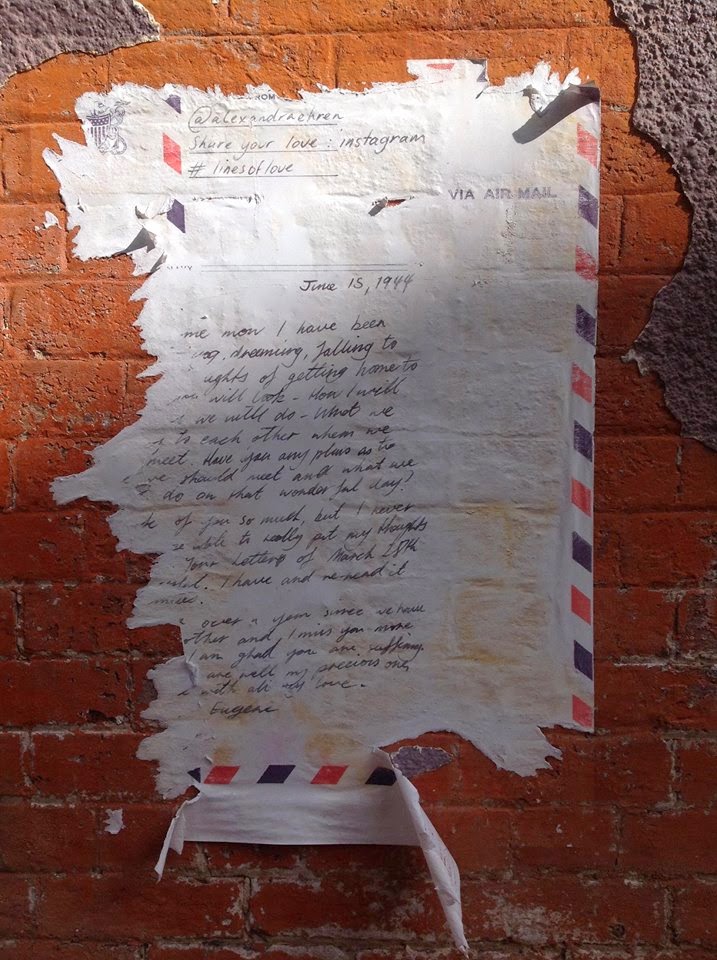 ROM
@alexandraehren
Share your love : instagram
# linesoflove
VIA AIR MAIL
June 15, 1944
me now I have been
dreaming, falling to
ughts of getting home to
will look - How I will
we will do - What we
to each other when we
meet. Have you any plans as to
we should meet and what we
do on that wonderful day?
of you so much, but I never
able to really put my thoughts
Your letters of March 28th
I have and re-read it
over a year since we have
other and I miss you more
I am glad you are
are well my precious one,
with all my love.
Eugene